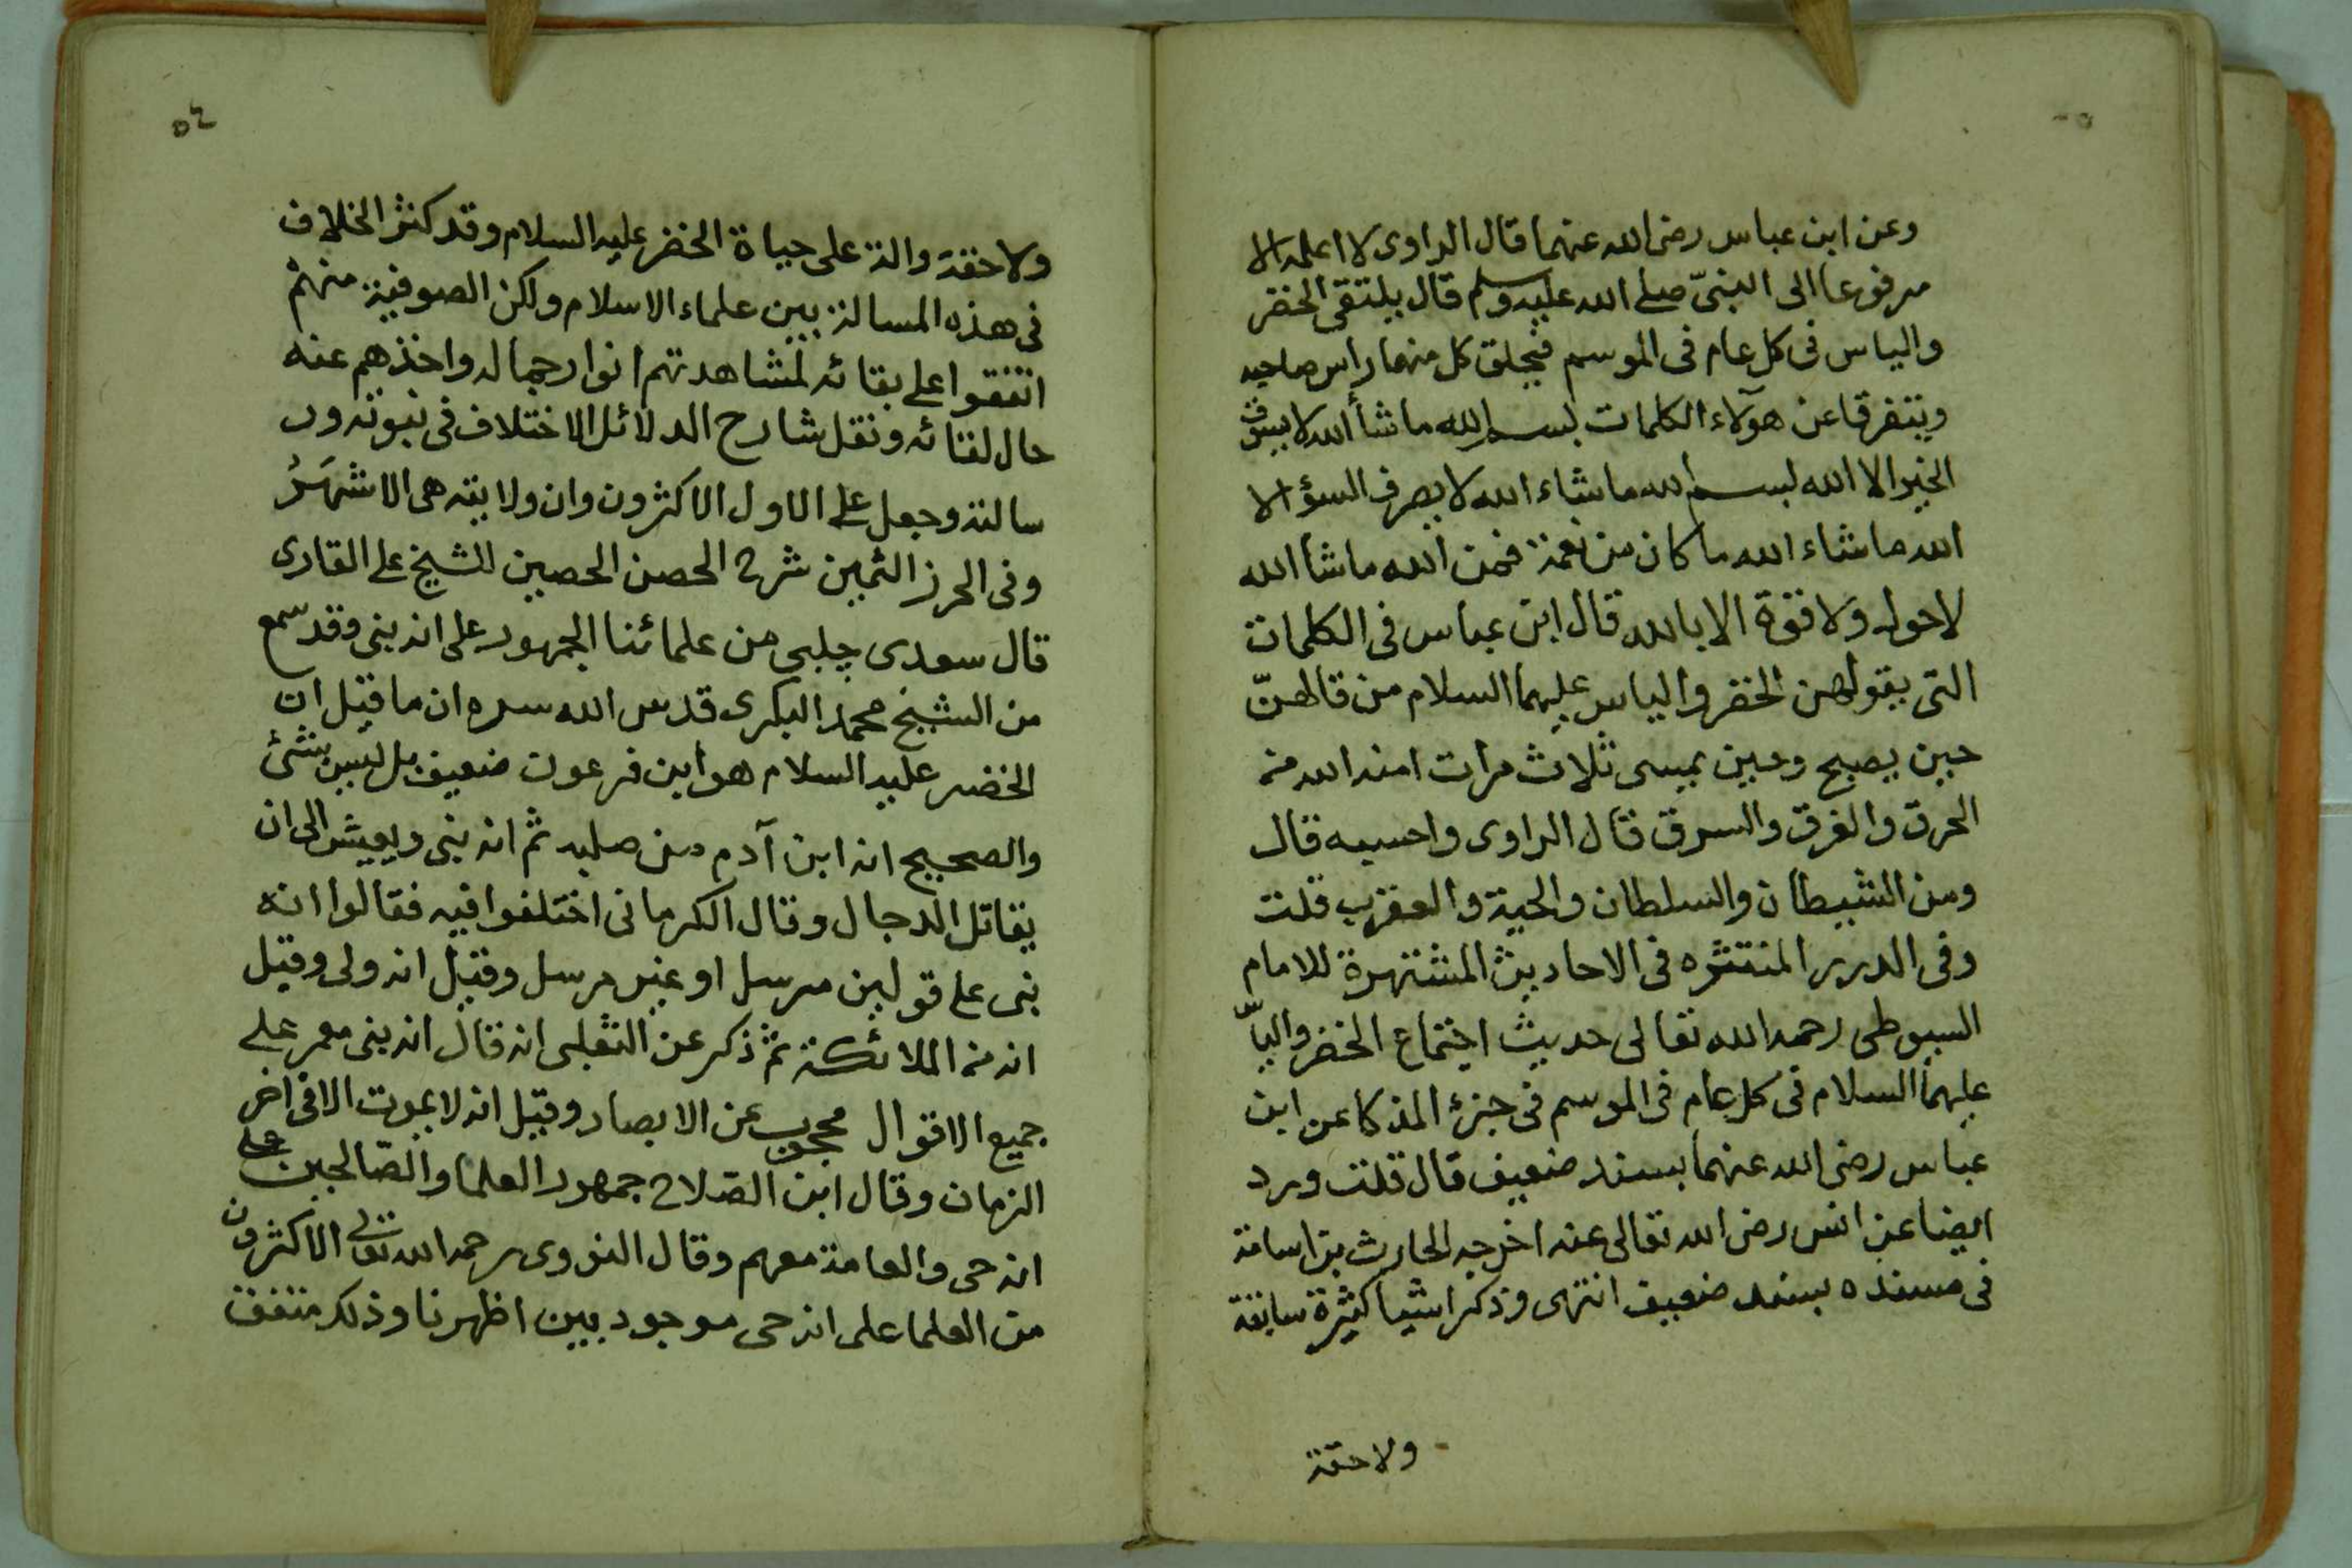 وعن ابن عباس رضى الله عنهما قال الراوى لا اعلمه الا
مرفوعا الى النبىّ صلى الله عليه وسلم قال يلتقى الخضر
والياس فى كل عام فى الموسم فيحلق كل منهما راس صاحبه
ويتفرقا عن هولاء الكلمات بسم الله ما شاء الله لا يسوق
الخير الا الله بسم الله ما شاء الله لا يصرف السؤ الا
الله ما شاء الله ما كان من نعمة فمن الله ما شاء الله
لا حول ولا قوة الا بالله قال ابن عباس فى الكلمات
التى يقولهن الخضر والياس عليهما السلام من قالهنّ
حين يصبح وحين يمسى ثلاث مرات امنه الله من
الحرق والغرق والسرق قال الراوى واحسبه قال
ومن الشيطان والسلطان والحية والعقرب قلت
وفى الدرر المنتثره فى الاحاديث المشتهرة للامام
السيوطى رحمه الله تعالى حديث اجتماع الخضر واليا
عليهما السلام فى كل عام فى الموسم فى جزء المذكا عن ابن
عباس رضى الله عنهما بسند ضعيف قال قلت ورد
ايضا عن انس رضى الله تعالى عنه اخرجه الحارث بن اسامة
فى مسنده بسند ضعيف انتهى وذكر اشيا كثيرة سابقة
ولاحقة
٥٢
ولاحقة دالة على حياة الخضر عليه السلام وقد كثر الخلاف
فى هذه المسالة بين علماء الاسلام ولكن الصوفية منهم
اتفقوا على بقائه لمشاهدتهم انوار جماله واخذهم عنه
حال لقائه ونقل شارح الدلائل الاختلاف فى نبوته ور
سالته وجعل على الاول الاكثرون وان ولايته هى الاشهَرُ
وفى الحرز الثمين شرح الحصن الحصين للشيخ على القارى
قال سعدى چلبى من علمائنا الجمهور على انه نبى وقد سمع
من الشيخ محمد البكرى قدس الله سره ان ما قيل ان
الخضر عليه السلام هو ابن فرعون ضعيف بل ليس بشئ
والصحيح انه ابن آدم من صلبه ثم انه نبى ويعيش الى ان
يقاتل الدجال وقال الكرمانى اختلفوا فيه فقالوا انه
نبى على قولين مرسل او غير مرسل وقيل انه ولى وقيل
انه من الملائكة ثم ذكر عن الثعلبى انه قال انه نبى معمر على
جميع الاقوال محجوب عن الابصار وقيل انه لا يموت الا فى اخر
الزمان وقال ابن الصلاح جمهور العلما والصّالحين على
انه حى والعامة معهم وقال النووى رحمه الله تعالى الاكثرون
من العلما على انه حى موجود بين اظهرنا وذلك متفق